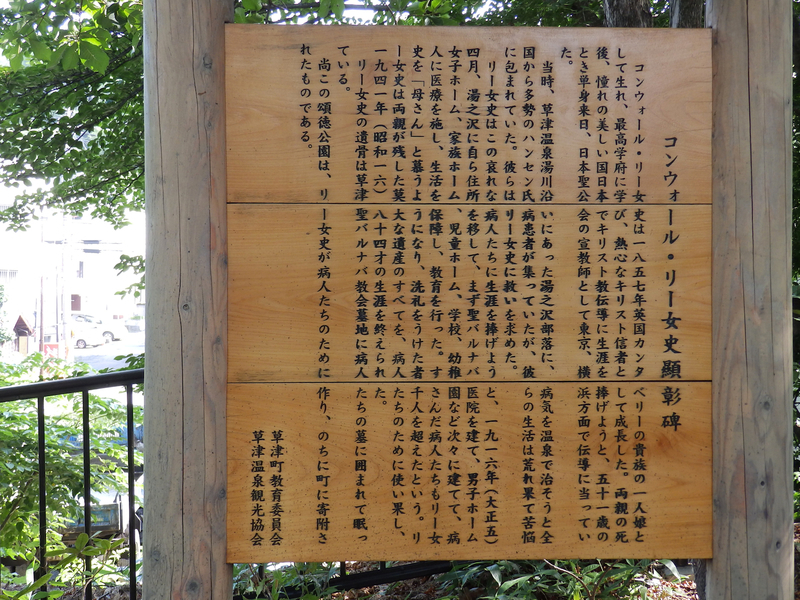 コンウォール・リー女史顕彰碑
コンウォール・リー女史は一八五七年英国カンタベリーの貴族の一人娘と
して生れ、最高学府に学び、熱心なキリスト信者として成長した。両親の死
後、憧れの美しい国日本でキリスト教伝導に生涯を捧げようと、五十一歳の
とき単身来日、日本聖公会の宣教師として東京、横浜方面で伝導に当ってい
た。
当時、草津温泉湯川沿いにあった湯之沢部落に、病気を温泉で治そうと全
国から多勢のハンセン氏病患者が集っていたが、彼らの生活は荒れ果て苦悩
に包まれていた。彼らはリー女史に救いを求めた。
リー女史はこの哀れな病人たちに生涯を捧げようと、一九一六年(大正五)
四月、湯之沢に自ら住所を移して、まず聖バルナバ医院を建て、男子ホーム
女子ホーム、家族ホーム、児童ホーム、学校、幼稚園など次々に建てて、病
人に医療を施し、生活を保障し、教育を行った。すさんだ病人たちもリー女
史を「母さん」と慕うようになり、洗礼をうけた者千人を超えたという。リ
ー女史は両親が残した莫大な遺産のすべてを、病人たちのために使い果し、
一九四一年(昭和一六)八十四才の生涯を終えられた。
リー女史の遺骨は草津聖バルナバ教会墓地に病人たちの墓に囲まれて眠っ
ている。
尚この頌徳公園は、リー女史が病人たちのために作り、のちに町に寄附さ
れたものである。
草津町教育委員会
草津温泉観光協会